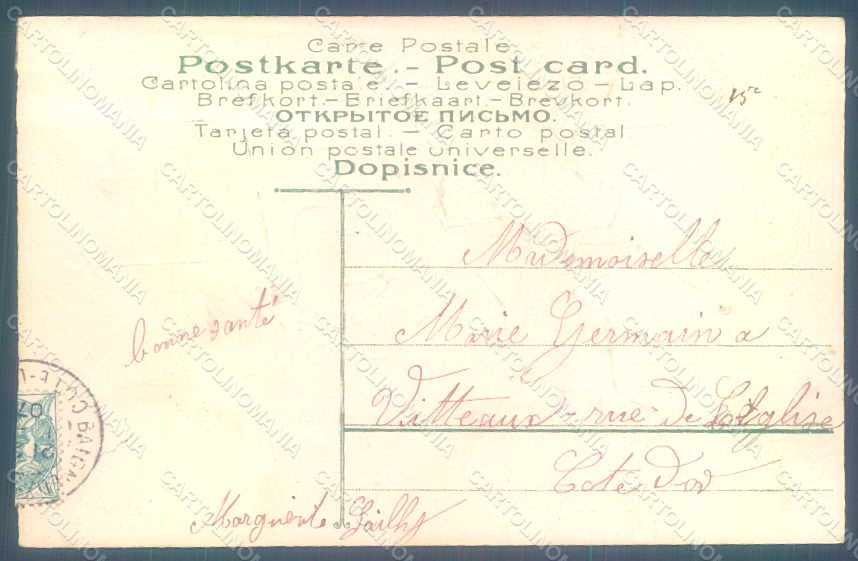 Carte Postale.
Postkarte. – Post card.
Cartolina postale. – Levelező – Lap.
Brefkort. – Briefkaart. – Brevkort.
ОТКРЫТОЕ ПИСЬМО.
Tarjeta postal. – Carto postal.
Union postale universelle.
Dopisnice.
15c
Mademoiselle
Marie Germain a
bonne santé
Vitteaux rue de L'Eglise
Cote d'or
Marguerite
07
CARTOLINOMANIA